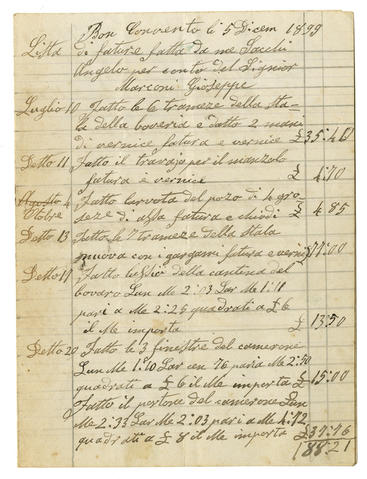 Bon Convento li 5 Dicem 1899
Lista di fature fatta da me Sacchi
Angelo per conto del Signior
Marconi Giuseppe
Luglio 10 Fatto le 6 trameze della sta-
la della boveria e datto 2 mani
di vernice fatura e vernice £ 35:40
Detto 11 Fatto il travajo per il manzolo
fatura e vernice £ 4:70
Agosto
Otobre 4 Fatto la vota del pozo di 4 gro-
seze di assa fatura e chiodi £ 4 85
Detto 13 Fatto le 7 trameze della stala
nuova con i gargami fatura e verni £ 77:00
Detto 17 Fatto luslio della cantina del
bovaro Lun Me 2:03 Lar Me 1:11
pari a Me 2:25 quadrati a £ 6
il Me importa £ 13:50
Detto 20 Fatto le 3 finestre del camerone
Lun Me 1:10 Lar cen 76 pari a Me 2:50
quadrati a £ 6 il Me importa £ 15:00
Fatto il portone del camerone Lun
Me 2:33 Lar Me 2:03 pari a Me 4:72
quadrati a £ 8 il Me importa £ 37:76
188:21